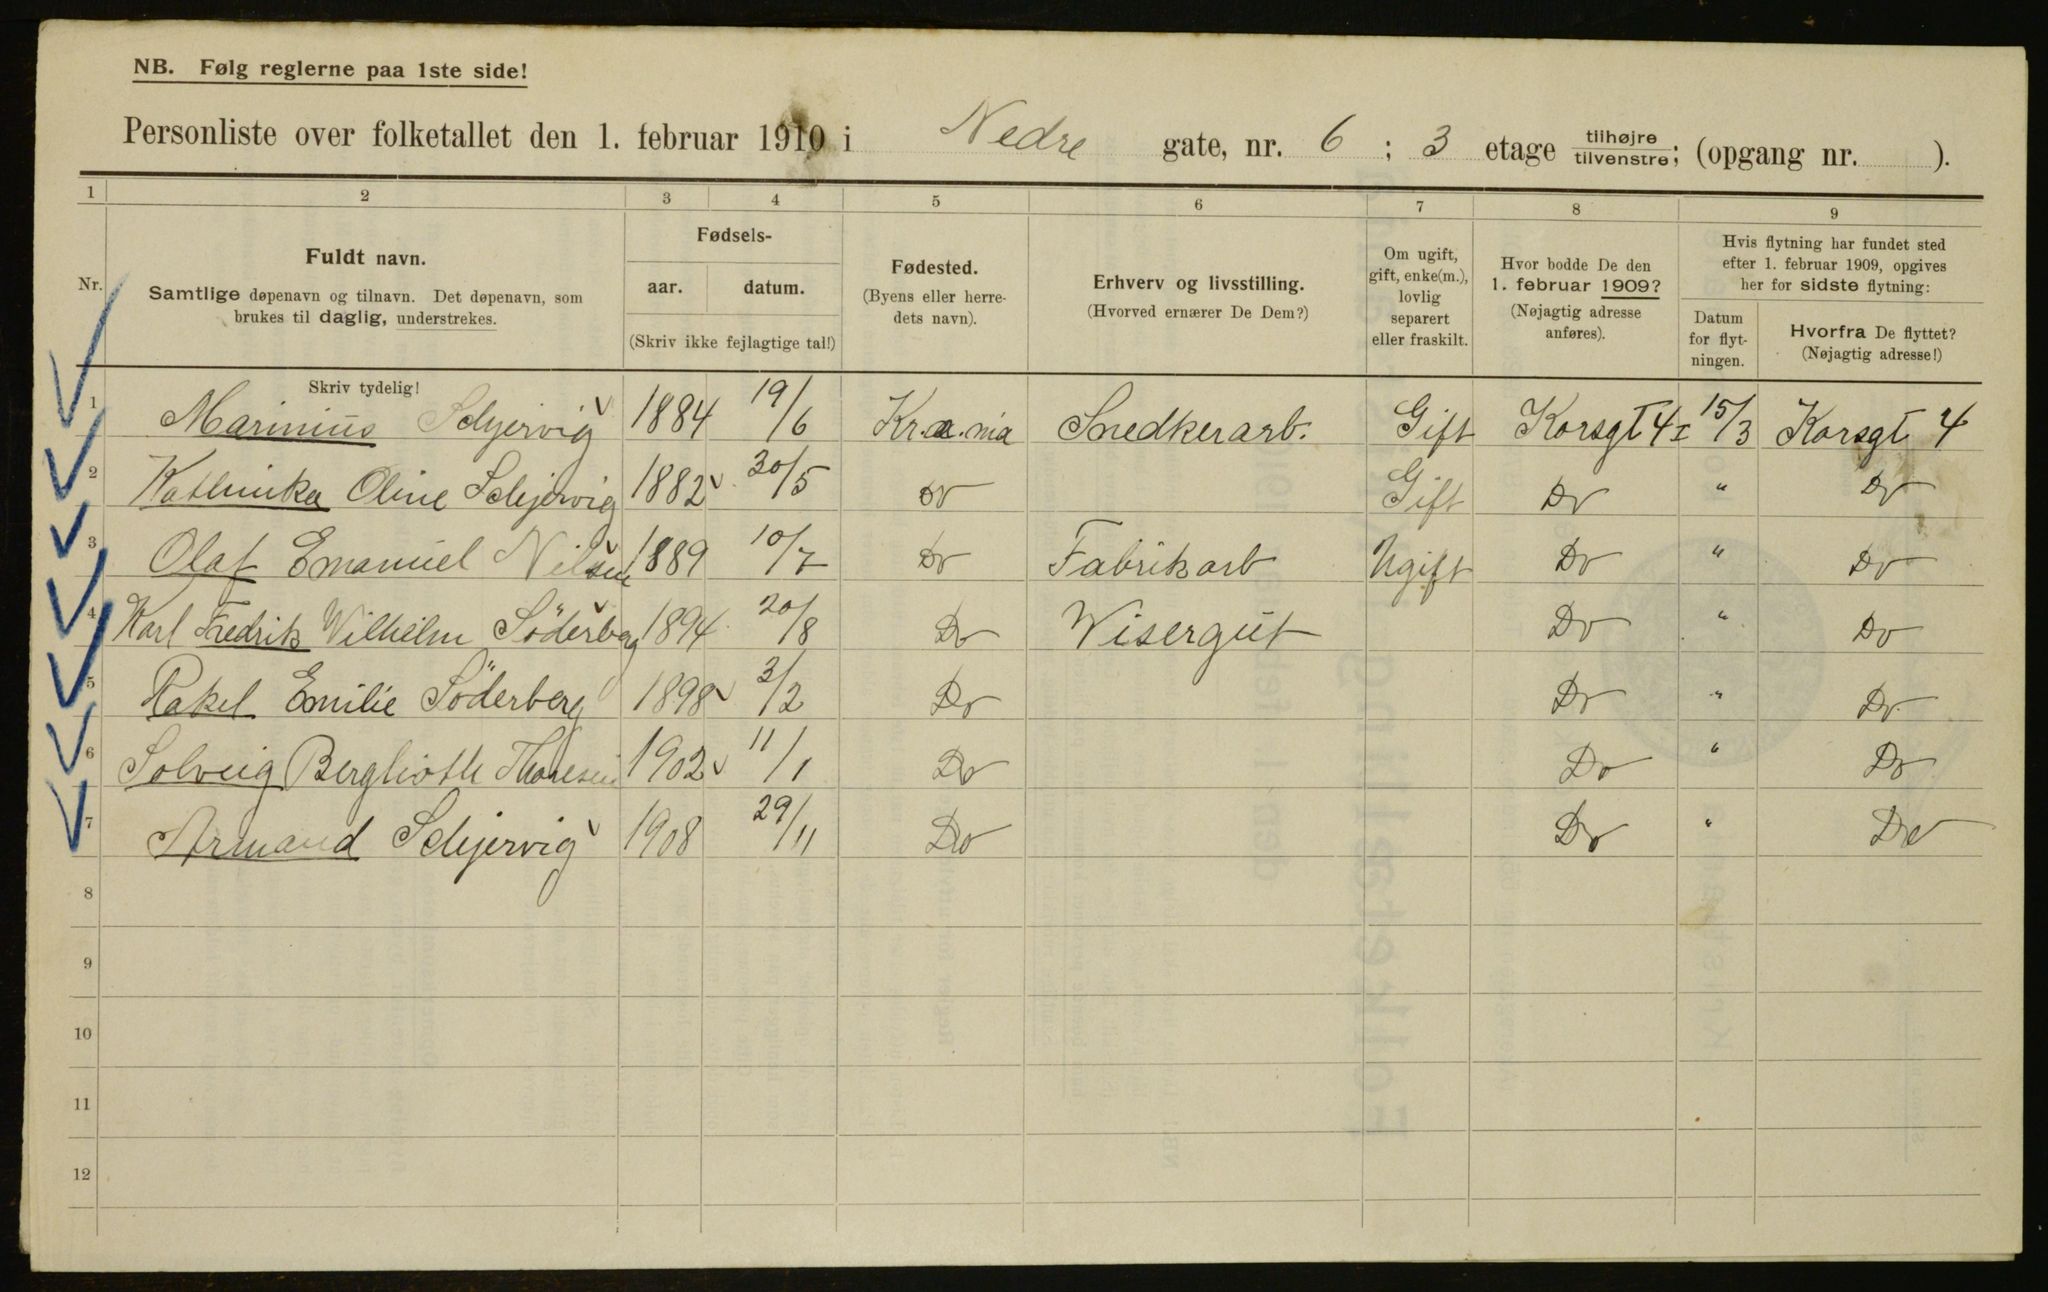 NB. Følg reglerne paa 1ste side!
Personliste over folketallet den 1. februar 1910 i Nedre gate, nr. 6 ; 3 etage tilhøjre tilvenstre; (opgang nr. ).
1 2 3 4 5 6 7 8 9
Nr. Fuldt navn. Samtlige døpenavn og tilnavn. Det døpenavn, som brukes til daglig, understrekes.
Fødsels- aar. datum. (Skriv ikke fejlagtige tal!)
Fødested. (Byens eller herredets navn).
Erhverv og livsstilling. (Hvorved ernærer De Dem?)
Om ugift, gift, enke(m.), lovlig separert eller fraskilt.
Hvor bodde De den 1. februar 1909? (Nøjagtig adresse anføres).
Hvis flytning har fundet sted efter 1. februar 1909, opgives her for sidste flytning:
Datum for flytningen. Hvorfra De flyttet? (Nøjagtig adresse!)
Skriv tydelig!
1 Marinius Schjervig 1884 19/6 Kr.a.nia Snedkerarb. Gift Korsgt 4 I 15/3 Korsgt 4
2 Oline Schjervig 1882 30/5 Do Gift Do " Do
3 Olaf Emanuel Nilsen 1889 10/7 Do Fabrikarb Ugift Do " Do
4 Karl Fredrik Vilhelm Söderberg 1894 20/8 Do Wisergut Do " Do
5 Rakel Emilie Söderberg 1898 3/2 Do Do " Do
6 Solveig Berglioth Thoresen 1902 11/1 Do Do " Do
7 Armand Schjervig 1908 29/11 Do Do " Do
8
9
10
11
12